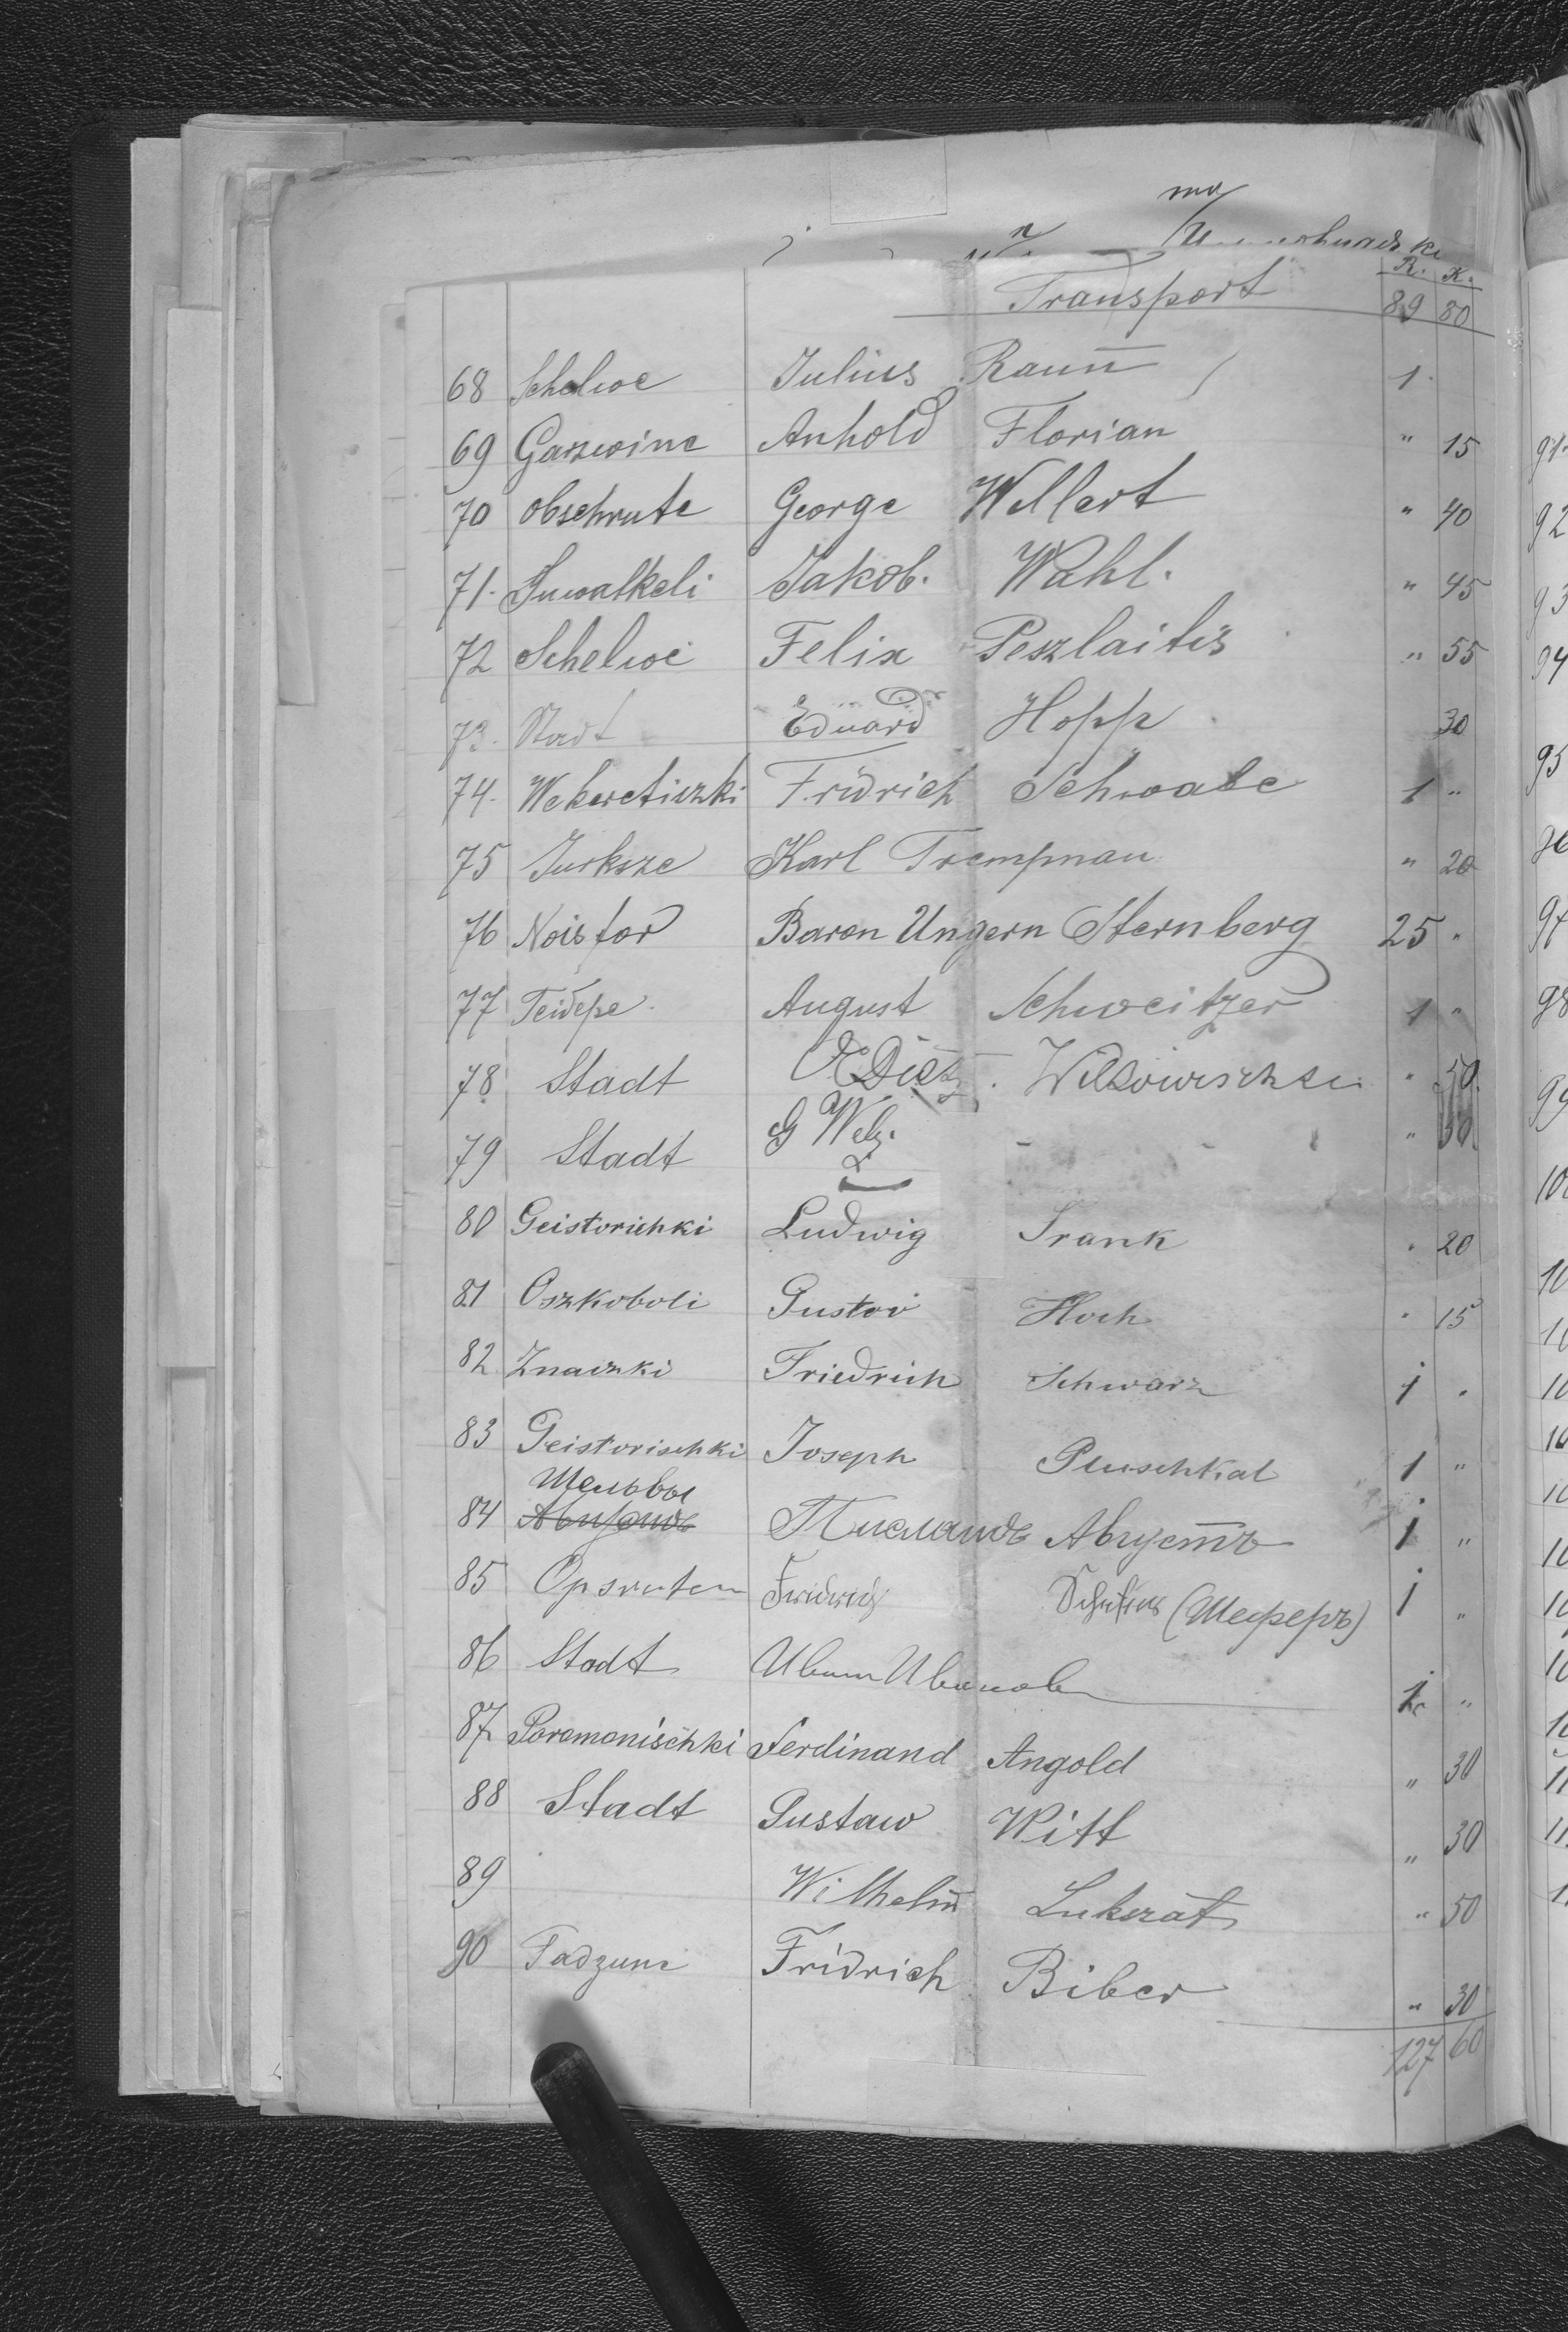 R. K.
Transport 89 80
68 Schelwe Julius Raun̅ 1
69 Garswine Anhold Florian " 15
70 Obschrute George Wellert " 40
71. Suwalkeli Jakob. Wahl. " 45
72 Schelwi Felix Peszlaitis " 55
73. Stadt Eduard Hopp 30
74. Fridrich Schwabe 1 "
75 Jurksze Karl Trempnau " 20
76 Noisfor Baron Ungern Sternberg 25 "
77 Гейдере August Schweitzer 1 "
78 Stadt Dietz. " 50.
79 Stadt G Welz. "
80 Geistorischki Ludwig Frank " 20
81 Oszkoboli Gustov Hoch " 15
82 Znaizki Friedrich Schwarz 1 "
83 Geistorischki Joseph Pluschkat 1 "
Шельвы
84 Августъ 1 "
85 Opsruten Fridrich (Шеферъ) 1 "
86 Stadt Иванъ Ивановъ 1. "
87 Poromonischki Ferdinand Angold " 30
88 Stadt Gustaw Witt " 30
89 Wilhelm̅ Lukszat " 50
90 Fadzuni Fridrich Biber " 30
127 60